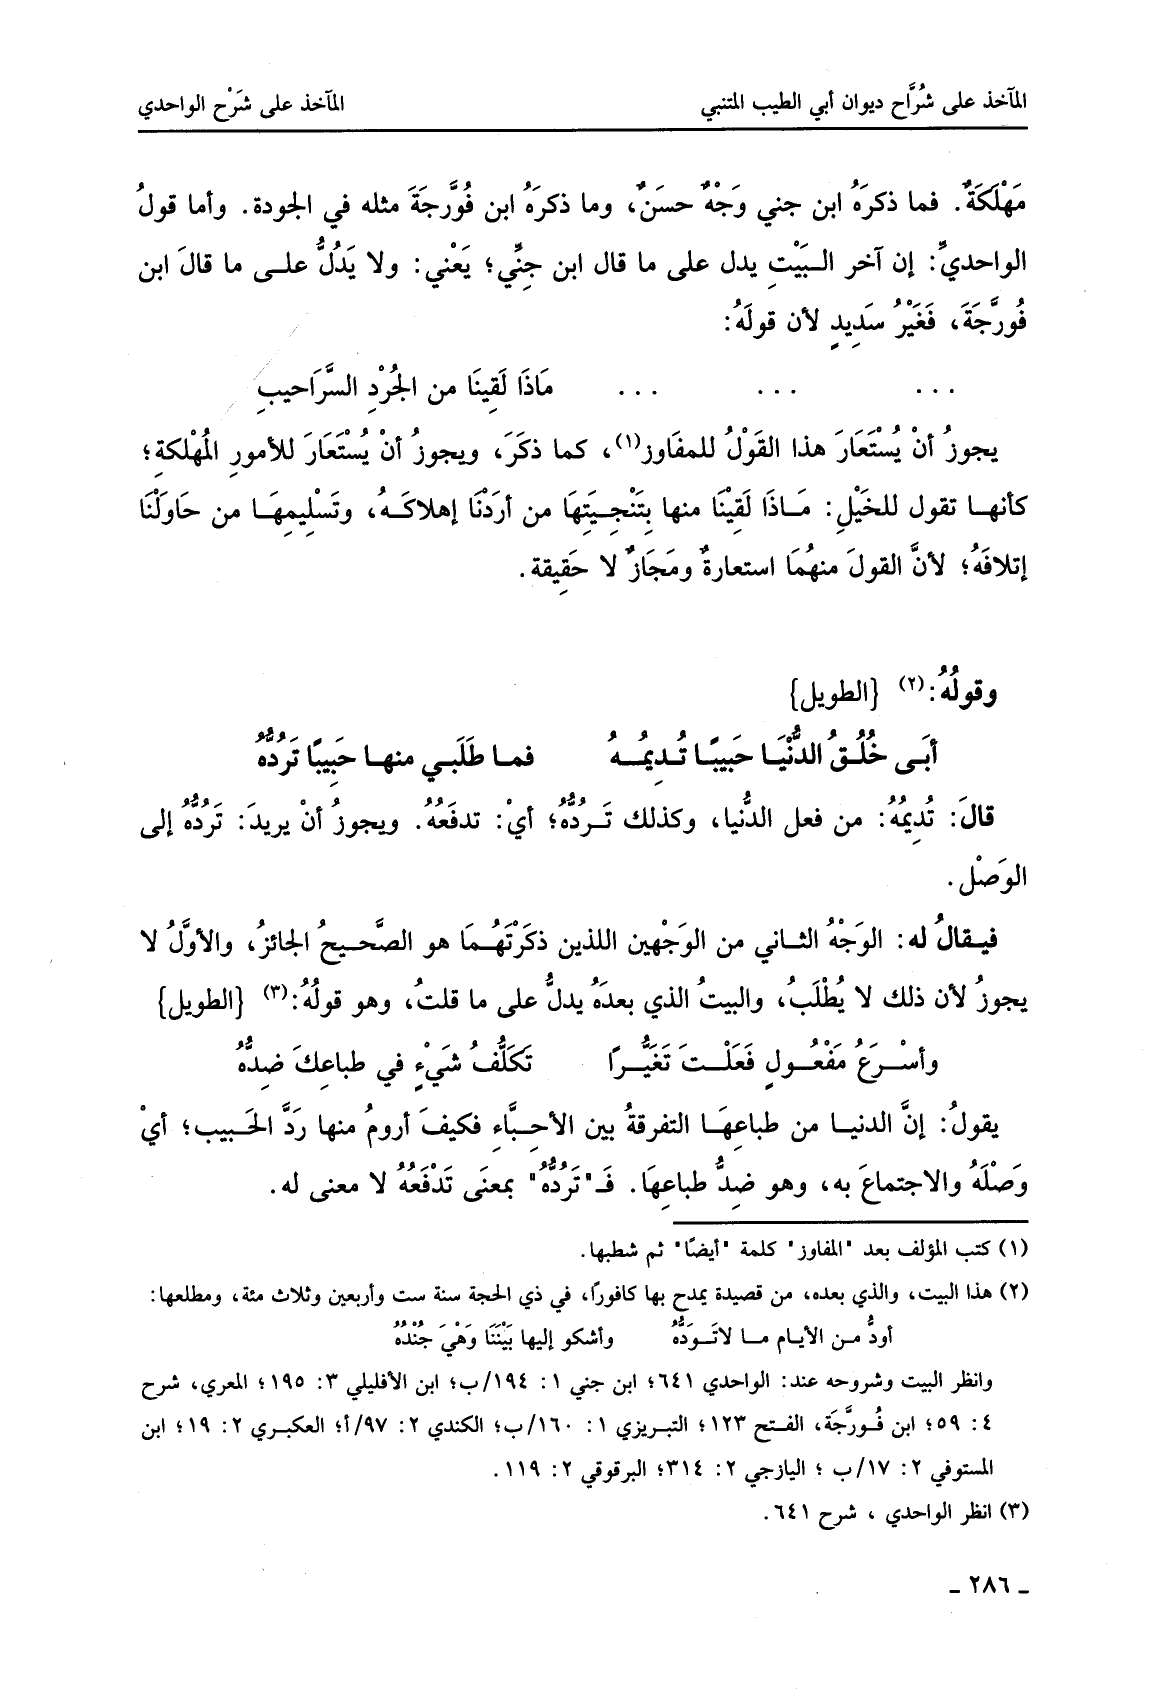 المآخذ على شُرَّاح ديوان أبي الطيب المتنبي المآخذ على شَرْح الواحدي
مَهْلَكَةٌ. فما ذكرَهُ ابن جني وَجْهٌ حسَنٌ، وما ذكرَهُ ابن فُورَّجَةَ مثله في الجودة. وأما قولُ
الواحديِّ: إن آخر البَيْتِ يدل على ما قال ابن جِنِّي؛ يَعْني: ولا يَدُلُّ على ما قالَ ابن
فُورَّجَةَ، فَغَيْرُ سَدِيدٍ لأن قولَهُ:
... ... ... مَاذَا لَقِينَا من الجُرْدِ السَّرَاحيبِ
يجوزُ أنْ يُسْتَعَارَ هذا القَوْلُ للمفَاوز(١)، كما ذكَرَ، ويجوزُ أنْ يُسْتَعَارَ للأمورِ المُهْلكةِ؛
كأنها تقول للخَيْلِ: مَاذَا لَقِيْنَا منها بِتَنْجِيَتِهَا من أرَدْنَا إهلاكَهُ، وتَسْلِيمِهَا من حَاوَلْنَا
إتلافَهُ؛ لأنَّ القولَ منهُمَا استعارةٌ ومَجَازٌ لا حَقِيقة.
وقولُهُ:(٢) {الطويل}
أبَى خُلُقُ الدُّنْيَا حَبيبًا تُدِيمُهُ فما طَلَبي منها حَبِيبًا تَرُدُّهُ
قالَ: تُدِيمُهُ: من فعل الدُّنيا، وكذلك تَرُدُّهُ؛ أيْ: تدفَعُهُ. ويجوزُ أنْ يريدَ: تَرُدُّهُ إلى
الوَصْل.
فيقالُ له: الوَجْهُ الثاني من الوَجْهين اللذين ذكَرْتَهُمَا هو الصَّحيحُ الجائزُ، والأوَّلُ لا
يجوزُ لأن ذلك لا يُطْلَبُ، والبيتُ الذي بعدَهُ يدلُّ على ما قلتُ، وهو قولُهُ:(٣) {الطويل}
وأسْرَعُ مَفْعُولٍ فَعَلْتَ تَغَيُّرًا تَكَلُّفُ شَيْءٍ في طباعِكَ ضِدُّهُ
يقولُ: إنَّ الدنيا من طباعِهَا التفرقةُ بين الأحِبَّاءِ فكيفَ أرومُ منها رَدَّ الحَبيب؛ أيْ
وَصْلَهُ والاجتماعَ به، وهو ضِدُّ طباعِهَا. فَـ"تَرُدُّهُ" بمعنَى تَدْفَعُهُ لا معنى له.
(١) كتب المؤلف بعد "المفاوز" كلمة "أيضًا" ثم شطبها.
(٢) هذا البيت، والذي بعده، من قصيدة يمدح بها كافورًا، في ذي الحجة سنة ست وأربعين وثلاث مئة، ومطلعها:
أودُّ من الأيام ما لاتَوَدُّهُ وأشكو إليها بَيْنَنَا وَهْيَ جُنْدُهُ
وانظر البيت وشروحه عند: الواحدي ٦٤١؛ ابن جني ١: ١٩٤/ب؛ ابن الأفليلي ٣: ١٩٥؛ المعري، شرح
٤: ٥٩؛ ابن فُورَّجَة، الفتح ١٢٣؛ التبريزي ١: ١٦٠/ب؛ الكندي ٢: ٩٧/أ؛ العكبري ٢: ١٩؛ ابن
المستوفي ٢: ١٧/ب ؛ اليازجي ٢: ٣١٤؛ البرقوقي ٢: ١١٩.
(٣) انظر الواحدي ، شرح ٦٤١.
ـ ٢٨٦ ـ